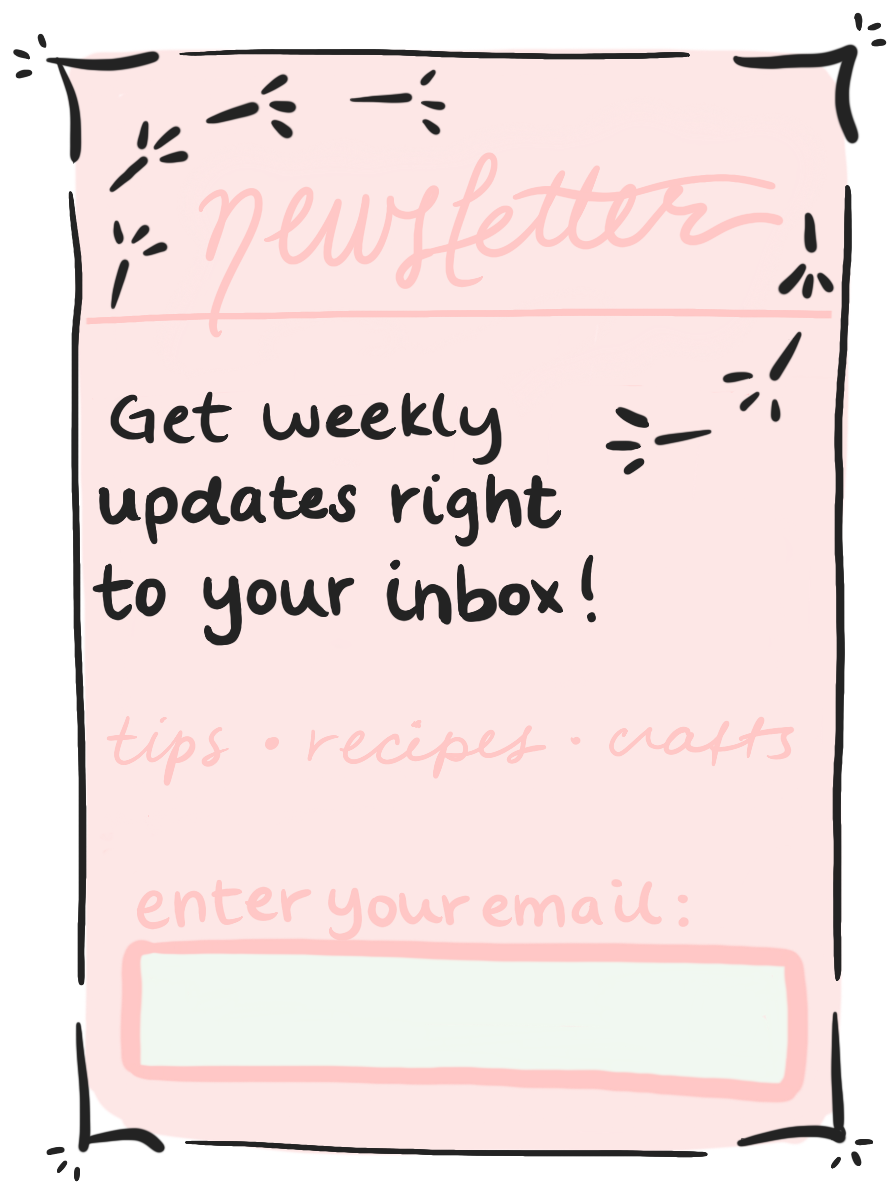 newsletter
Get weekly
updates right
to your inbox!
tips • recipes • crafts
enter your email: